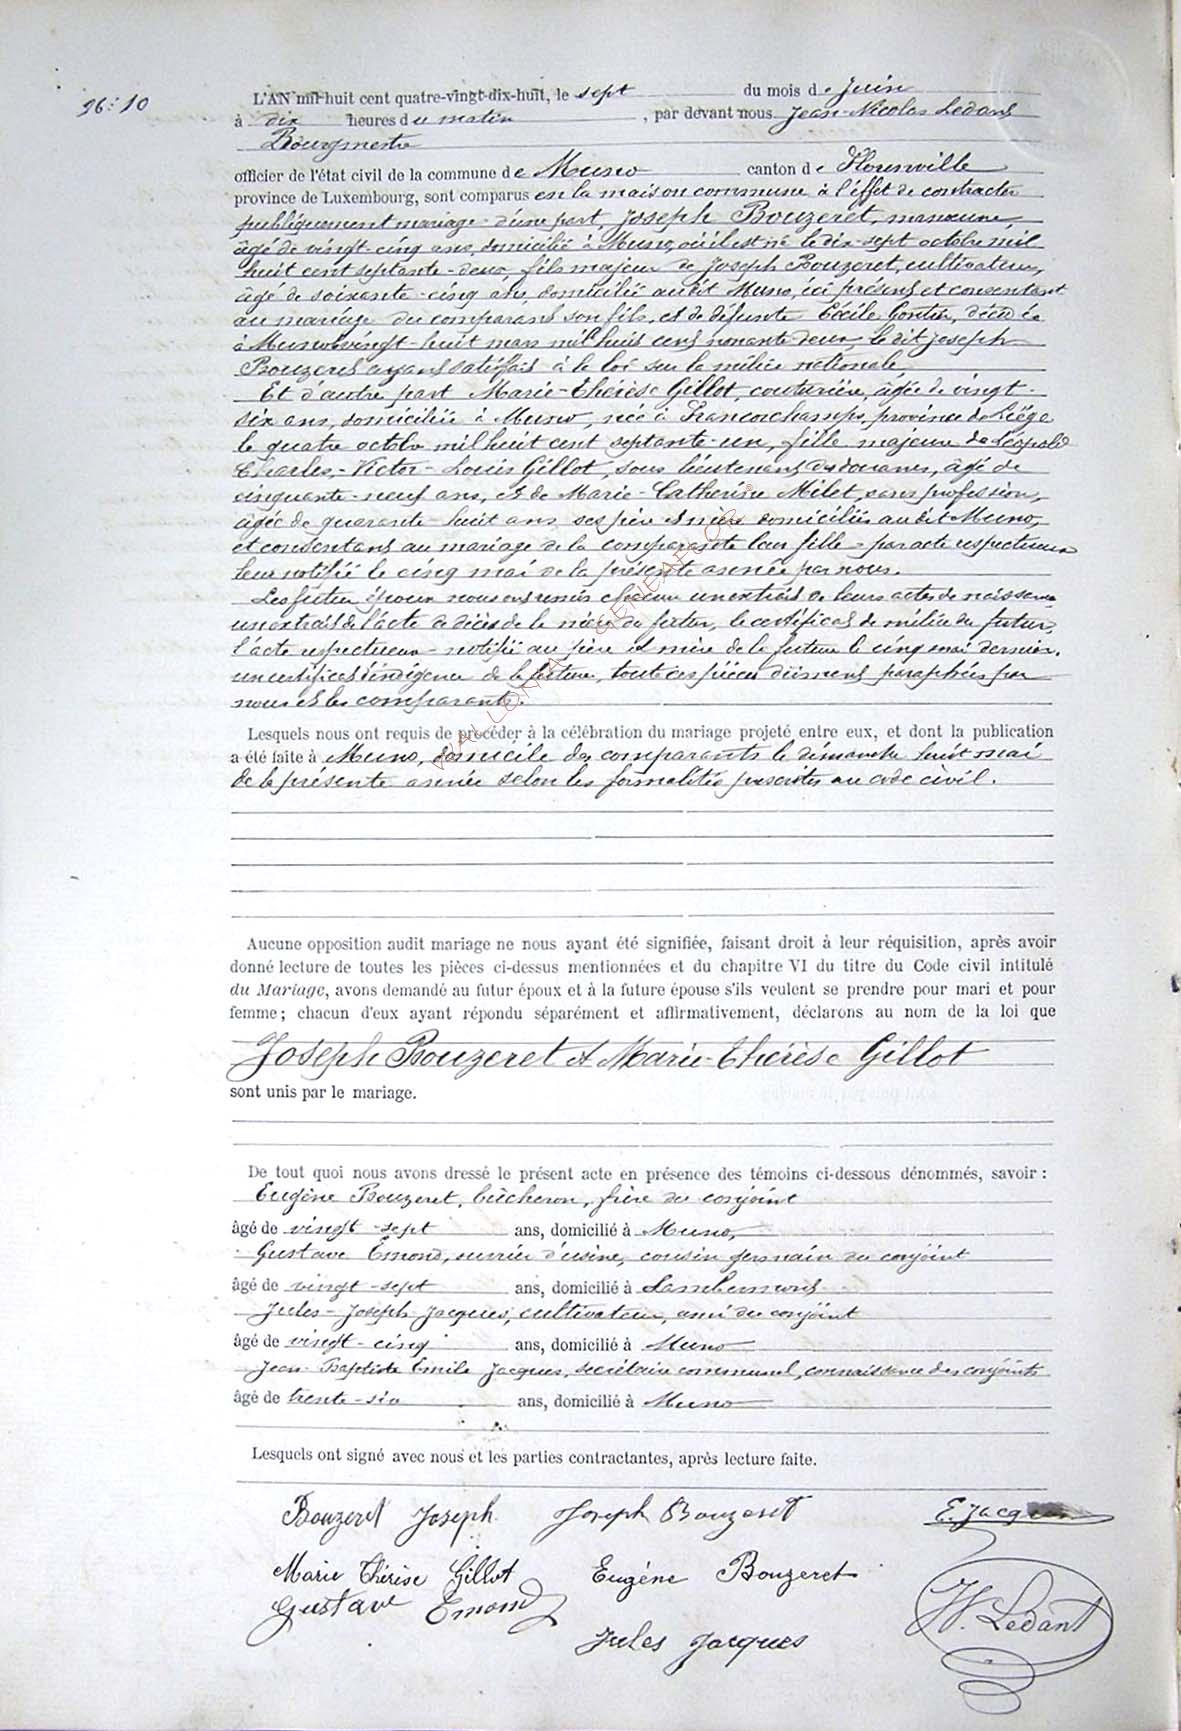 96:10
L'AN mil-huit cent quatre-vingt-dix-huit, le sept du mois de Juin
à dix heures du matin, par devant nous Jean-Nicolas Ledant
Bourgmestre
officier de l'état civil de la commune de Muno canton de Florenville
province de Luxembourg, sont comparus en la maison commune à l'effet de contracter
publiquement mariage d'une part, Joseph Bouzeret, manœuvre,
âgé de vingt-cinq ans, domicilié à Muno, où il est né le dix-sept octobre mil
huit cent septante-deux, fils majeur de Joseph Bouzeret, cultivateur,
âgé de soixante-cinq ans, domicilié audit Muno, ici présent et consentant
au mariage du comparant son fils, et de défunte Cécile Gontier, décédée
à Muno le vingt-huit mars mil huit cent nonante deux, le dit Joseph
Bouzeret ayant satisfait à la loi sur la milice nationale.
Et d'autre part Marie-Thérèse Gillot, couturière, âgée de vingt-
six ans, domiciliée à Muno, née à Francorchamps, province de Liège
le quatre octobre mil huit cent septante-un, fille majeure de Léopold
Charles-Victor-Louis Gillot, sous lieutenant des douanes, âgé de
cinquante-neuf ans, et de Marie-Catherine Milet, sans profession,
âgée de quarante-huit ans, ses père et mère domiciliés audit Muno,
et consentant au mariage de la comparante leur fille par acte respectueux
leur notifié le cinq mai de la présente année par nous.
Les futurs époux nous ont remis chacun un extrait de leurs actes de naissance
un extrait de l'acte de décès de la mère du futur, le certificat de milice du futur,
l'acte respectueux notifié au père et mère de la future le cinq mai dernier,
un certificat d'indigence de la future, toutes ces pièces dûment paraphées par
nous et les comparants.
Lesquels nous ont requis de procéder à la célébration du mariage projeté entre eux, et dont la publication
a été faite à Muno, domicile des comparants le dimanche huit mai
de la présente année selon les formalités prescrites au code civil.
Aucune opposition audit mariage ne nous ayant été signifiée, faisant droit à leur réquisition, après avoir
donné lecture de toutes les pièces ci-dessus mentionnées et du chapitre VI du titre du Code civil intitulé
du Mariage, avons demandé au futur époux et à la future épouse s'ils veulent se prendre pour mari et pour
femme ; chacun d'eux ayant répondu séparément et affirmativement, déclarons au nom de la loi que
Joseph Bouzeret et Marie-Thérèse Gillot
sont unis par le mariage.
De tout quoi nous avons dressé le présent acte en présence des témoins ci-dessous dénommés, savoir :
Eugène Bouzeret, bûcheron, frère du conjoint
âgé de vingt-sept ans, domicilié à Muno,
Gustave Émond, ouvrier d'usine, cousin germain du conjoint
âgé de vingt-sept ans, domicilié à Lambermont
Jules-Joseph Jacques, cultivateur, ami du conjoint
âgé de vingt-cinq ans, domicilié à Muno
Jean-Baptiste Emile Jacques, secrétaire communal, connaissance des conjoints
âgé de trente-six ans, domicilié à Muno
Lesquels ont signé avec nous et les parties contractantes, après lecture faite.
Bouzeret Joseph Joseph Bouzeret E. Jacques
Marie Thérèse Gillot Eugène Bouzeret
Gustave Emond Ledant
Jules Jacques
WALLONIA GENEAFGOR